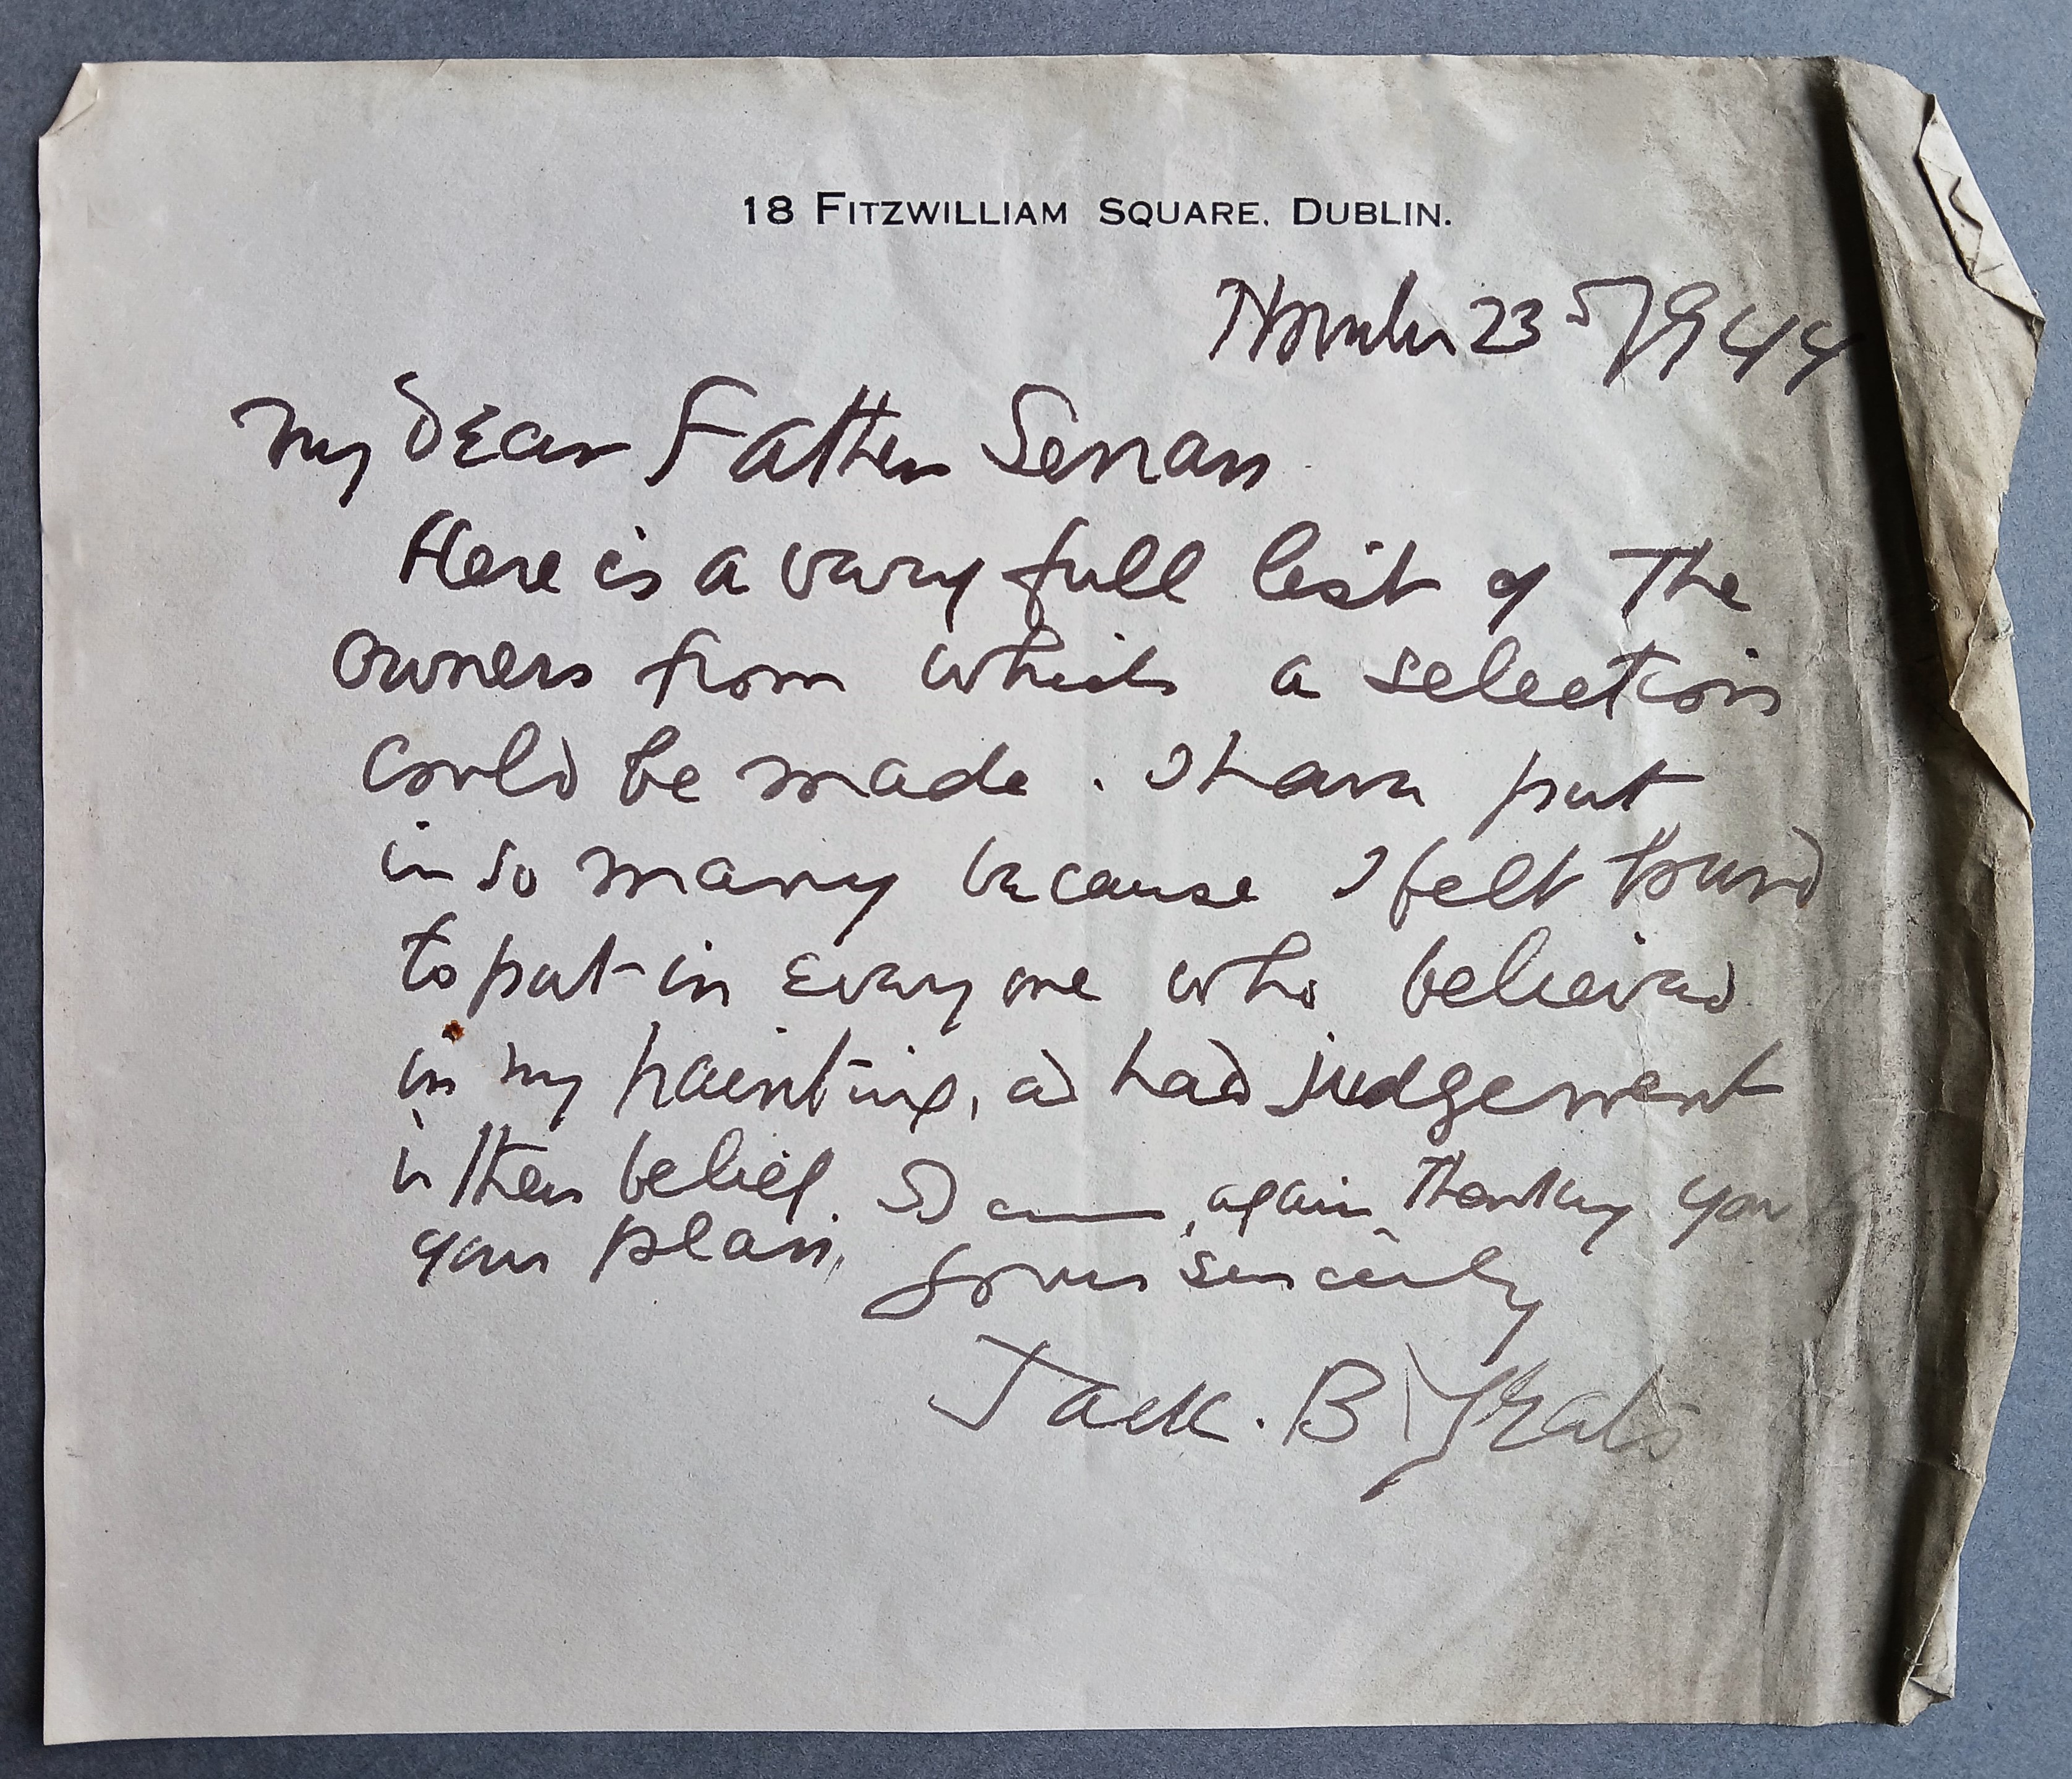 18 FITZWILLIAM SQUARE. DUBLIN.
November 23 1944
My dear Father Senan
Here is a very full list of The
owners from which a selection
could be made. I have put
in so many because I felt bound
to put in everyone who believed
in my painting, and had judgement
in their belief. again Thanking you
your plan,
Yours sincerely
Jack. B Yeats